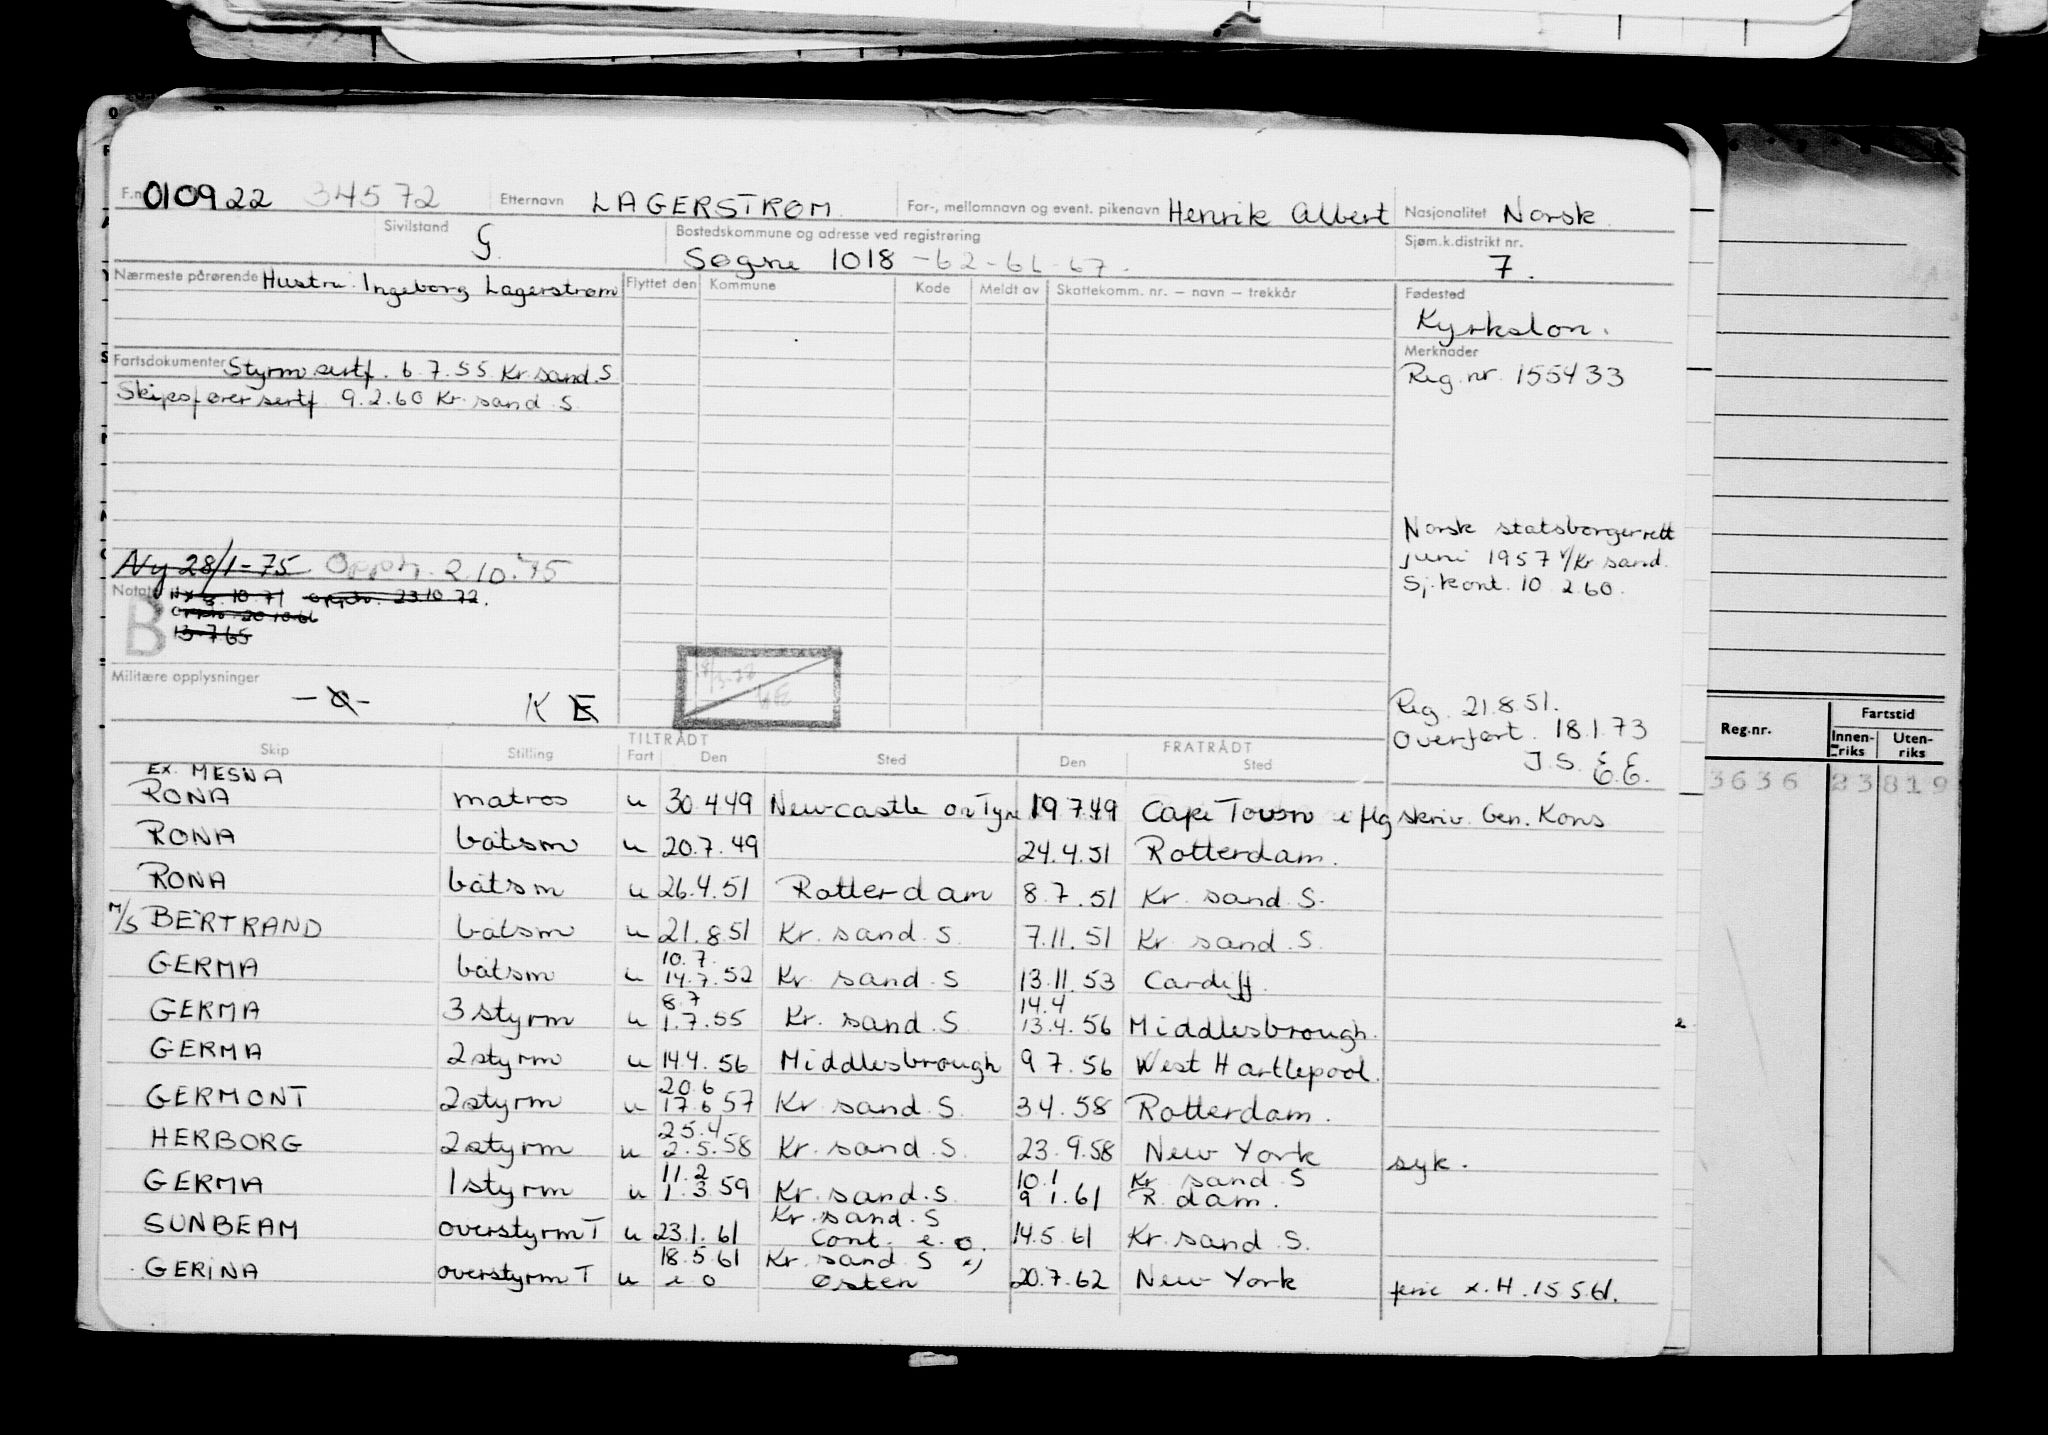 F.nr. 010922 34572 Etternavn LAGERSTRØM For-, mellomnavn og event. pikenavn Henrik Albert Nasjonalitet Norsk.
Sivilstand G. Bostedskommune og adresse ved registrering Søgne 1018 -62-66-67. Sjøm.k.distrikt nr. 7.
Nærmeste pårørende Hustru. Ingeborg Lagerstrøm Flyttet den Kommune Kode Meldt av Skattekomm. nr. – navn – trekkår Fødested
Kyrkslon.
Fartsdokumenter Styrm.sertf. 6.7.55 Kr.sand.S Merknader
Skipsfører sertf. 9.2.60 Kr.sand.S. Reg.nr. 155433
Norsk statsborgerrett
juni 1957 v/Kr sand.
Sj.kont. 10.2.60.
Ny 28/1-75 Opph. 2.10.75
Notater Ny 8.10.71 opphr. 23.10.72.
B opphr. 20.10.66
13.7.65
Militære opplysninger K E
Reg. 21.8.51.
Overført. 18.1.73
J.S. E.E.
Reg.nr. Fartstid
Innen-riks Uten-riks
3636 23 819
TILTRÅDT FRATRÅDT
Skip Stilling Fart Den Sted Den Sted
Ex. MESNA
RONA matros u 30.4.49 Newcastle on Tyne 19.7.49 Cape Town e flg skriv. Gen. Kons
RONA båtsm u 20.7.49 24.4.51 Rotterdam.
RONA båtsm u 26.4.51 Rotterdam 8.7.51 Kr. sand.S.
M/S BERTRAND båtsm u 21.8.51 Kr. sand.S. 7.11.51 Kr. sand.S.
10.7.
GERMA båtsm u 14.7.52 Kr. sand.S 13.11.53 Cardiff.
8.7 14.4
GERMA 3 styrm u 1.7.55 Kr. sand.S 13.4.56 Middlesbrough.
GERMA 2 styrm u 14.4.56 Middlesbrough 9.7.56 West Hartlepool.
20.6
GERMONT 2 styrm u 17.6.57 Kr. sand.S. 3.4.58 Rotterdam.
25.4
HERBORG 2 styrm u 2.5.58 Kr. sand.S. 23.9.58 New York syk.
11.2 10.1 Kr. sand.S
GERMA 1 styrm u 1.3.59 Kr. sand.S. 9.1.61 R.dam.
Kr. sand.S
SUNBEAM overstyrm T u 23.1.61 Cont. e.o. 14.5.61 Kr. sand.S.
18.5.61 Kr. sand.S x)
GERINA overstyrm T u e o østen 20.7.62 New York ferie x.H.15.5.61.